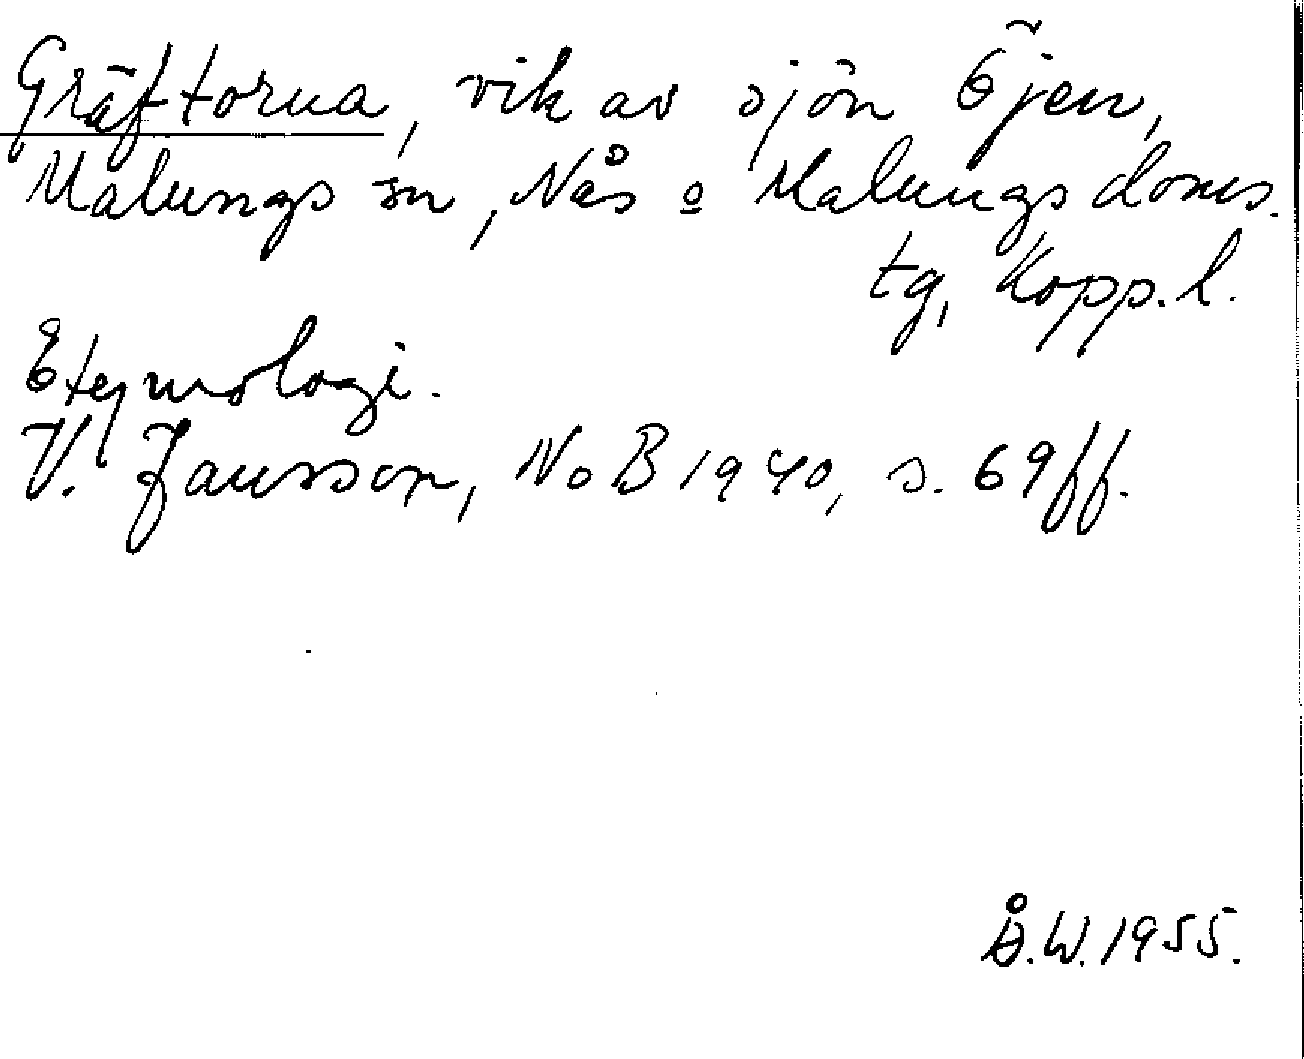 Gräftorna, vik av sjön Öjen,
Malungs sn, Nås o Malungs doms.
tg, Kopp. l.
Etymologi.
V. Jansson, NoB 1940, s. 69ff.
Å.W. 1955.